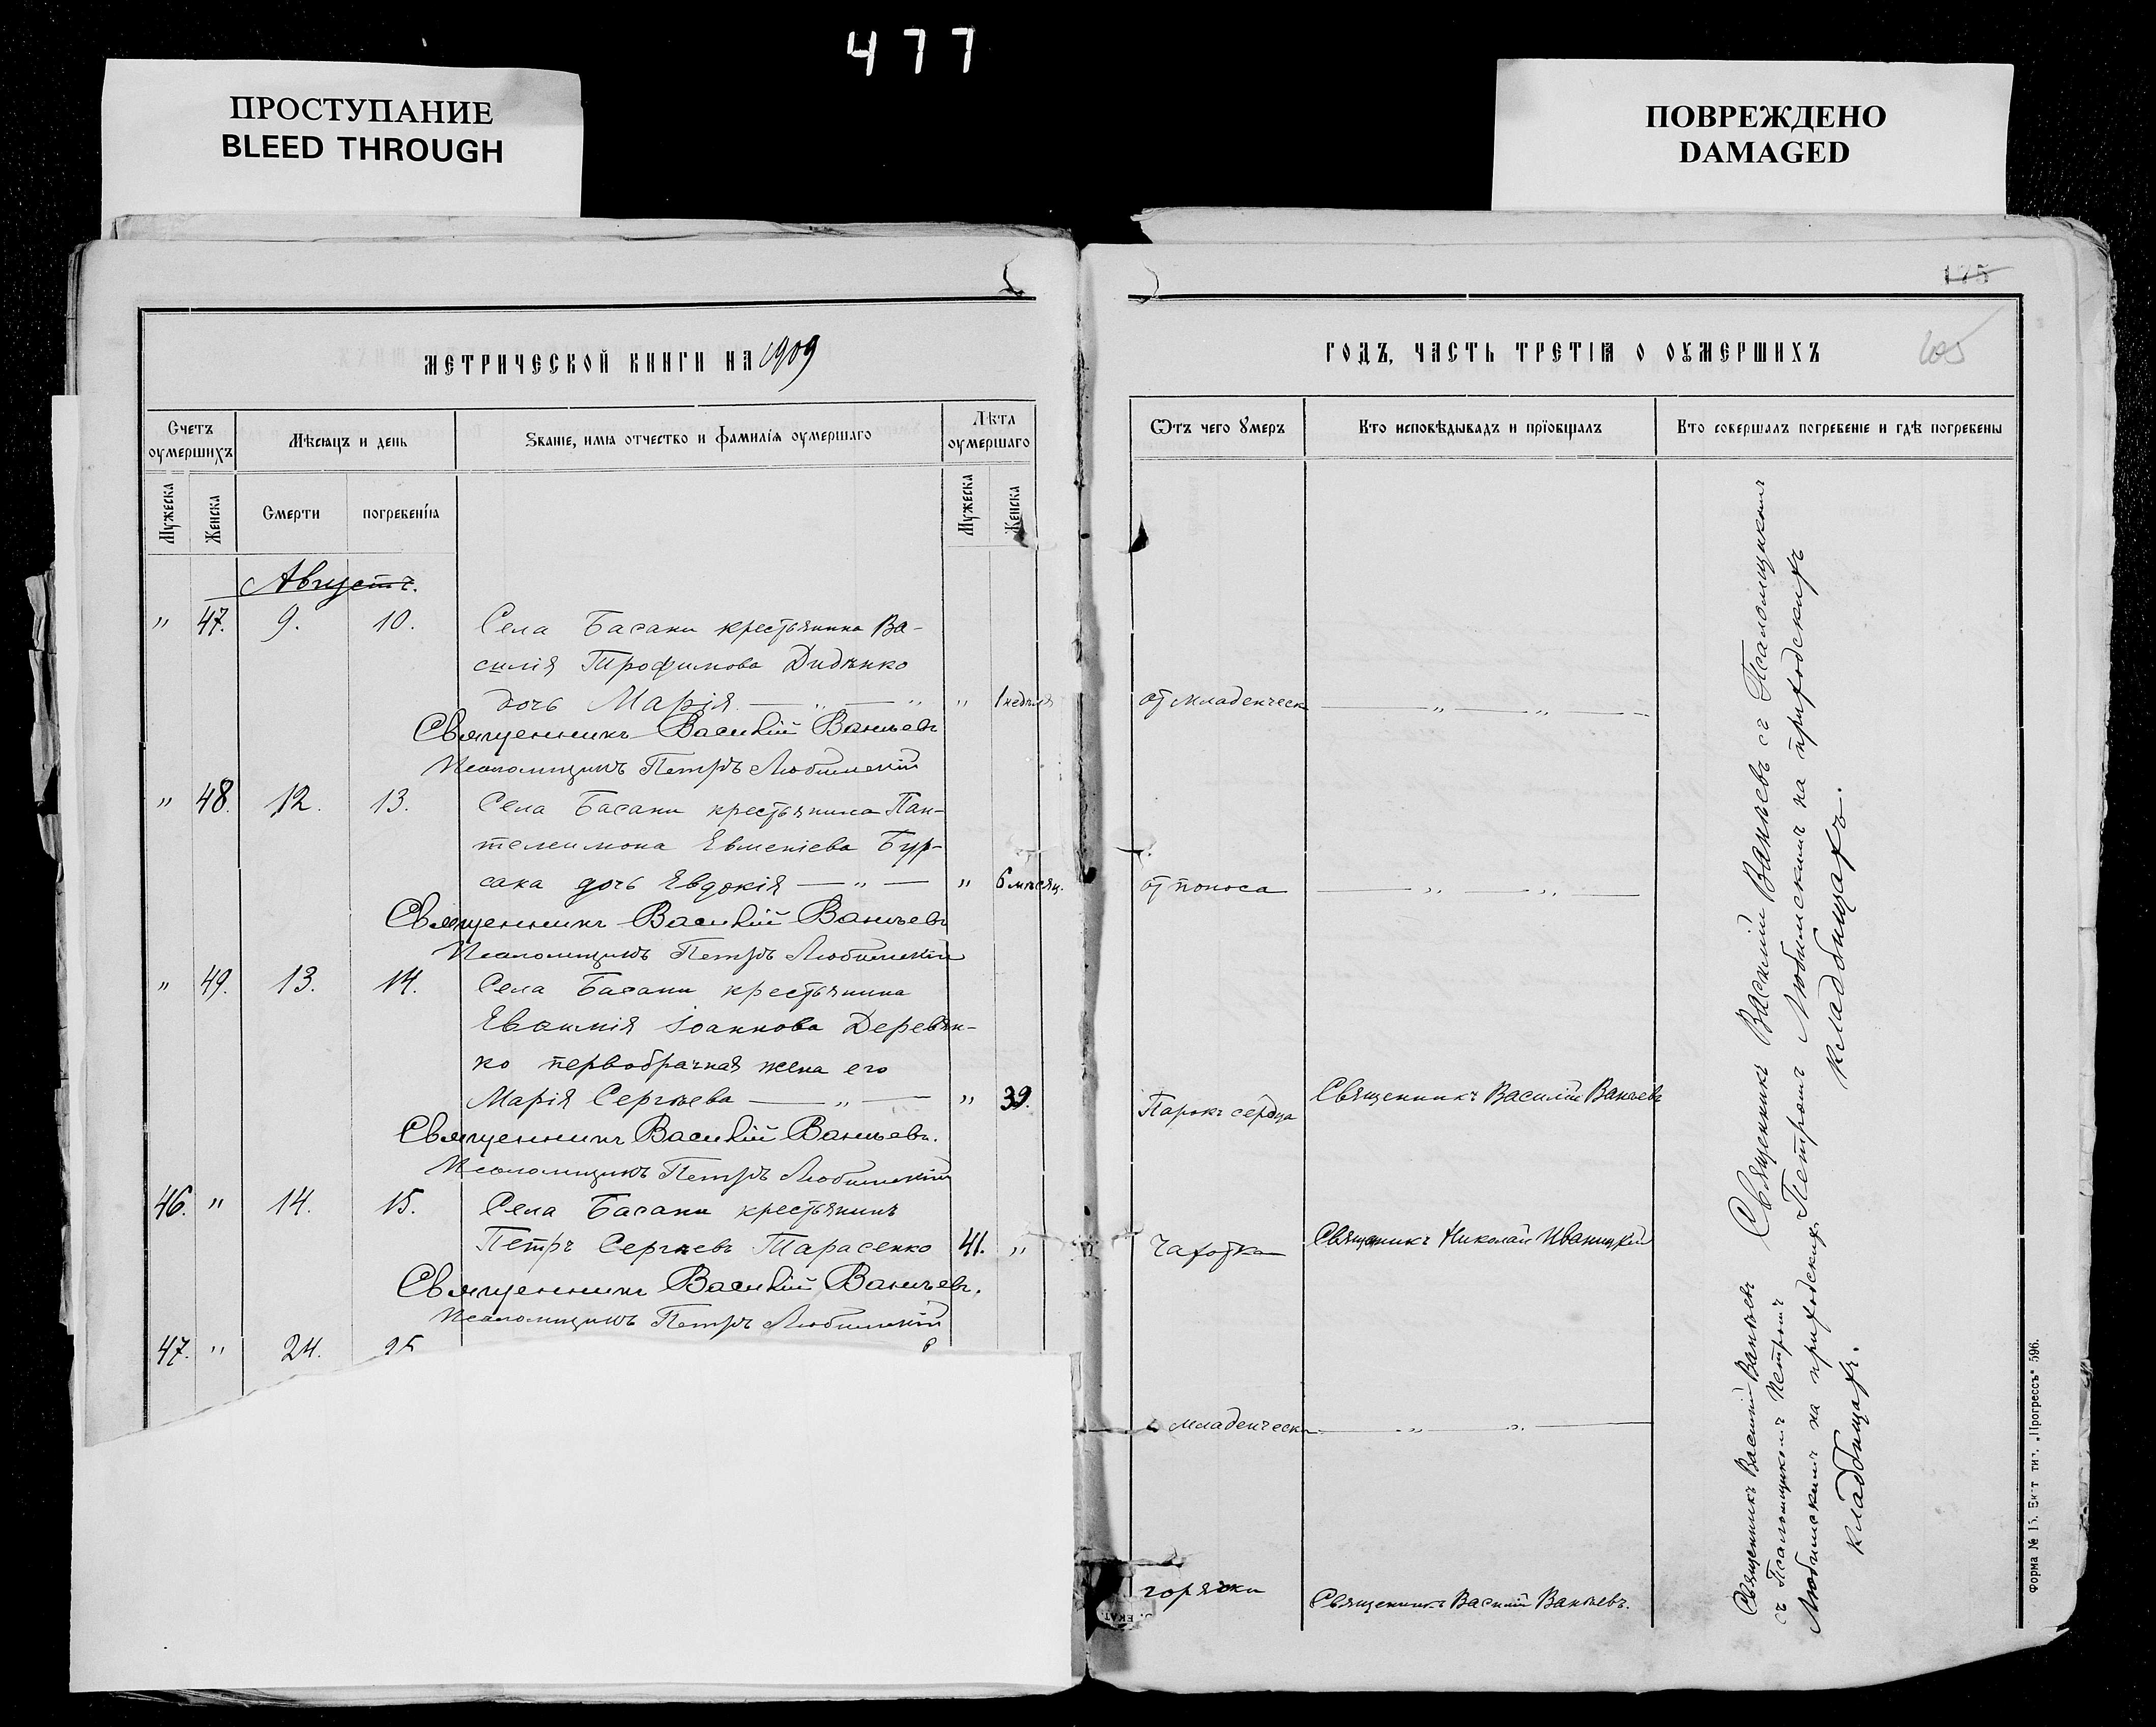 477
ПРОСТУПАНИЕ
BLEED THROUGH
ПОВРЕЖДЕНО
DAMAGED
175
МЕТРИЧЕСКОЙ КНИГИ НА 1909
ГОДЪ, ЧАСТЬ ТРЕТІѦ О ОУМЕРШИХЪ
105
Счетъ оумершихъ
Мѣсяцъ и день
Званіе, имѧ отчество и фамиліѧ оумершаго
Лѣта оумершаго
Ѿтъ чего Умеръ
Кто исповѣдывадъ и прїобщалъ
Кто совершалъ погребеніе и гдѣ погребены
Мужеска
Женска
Смерти
погребеніѧ
Мужеска
Женска
Августъ.
" 47. 9. 10. Села Басани крестьянина Ва-
силія Трофимова Дидѣнко
дочь Марія — " — " " 1 недѣля от младенческ — " — " —
Священникъ Василій Ваньевъ
Псаломщикъ Петръ Любимскій
" 48. 12. 13. Села Басани крестьянина Пан-
телеимона Евменіева Бур-
сака дочь Евдокія — " — " 6 мѣсяц. от поноса — " — " —
Священникъ Василій Ваньевъ
Псаломщикъ Петръ Любимскій
" 49. 13. 14. Села Басани крестьянина
Евфимія Іоаннова Деревян-
ко первобрачная жена его
Марія Сергѣева — " — " 39. Парокъ сердца Священникъ Василій Ваньевъ
Священникъ Василій Ваньевъ.
Псаломщикъ Петръ Любимскій
46. " 14. 15. Села Басани крестьянинъ
Петръ Сергѣевъ Тарасенко 41. " Чахотка Священникъ Николай Иваницкій
Священникъ Василій Ваньевъ.
Псаломщикъ Петръ Любимскій
47. " 24. 25
младенческ — " — " —
горячки Священникъ Василій Ваньевъ.
Священникъ Василій Ваньевъ съ Псаломщикомъ
Петромъ Любимскимъ на приходскихъ
кладбищахъ.
Священникъ Василій Ваньевъ
съ Псаломщикомъ Петромъ
Любимскимъ на приходскихъ
кладбищахъ.
Форма № 15. Екат. тип. „Прогрессъ" 596.